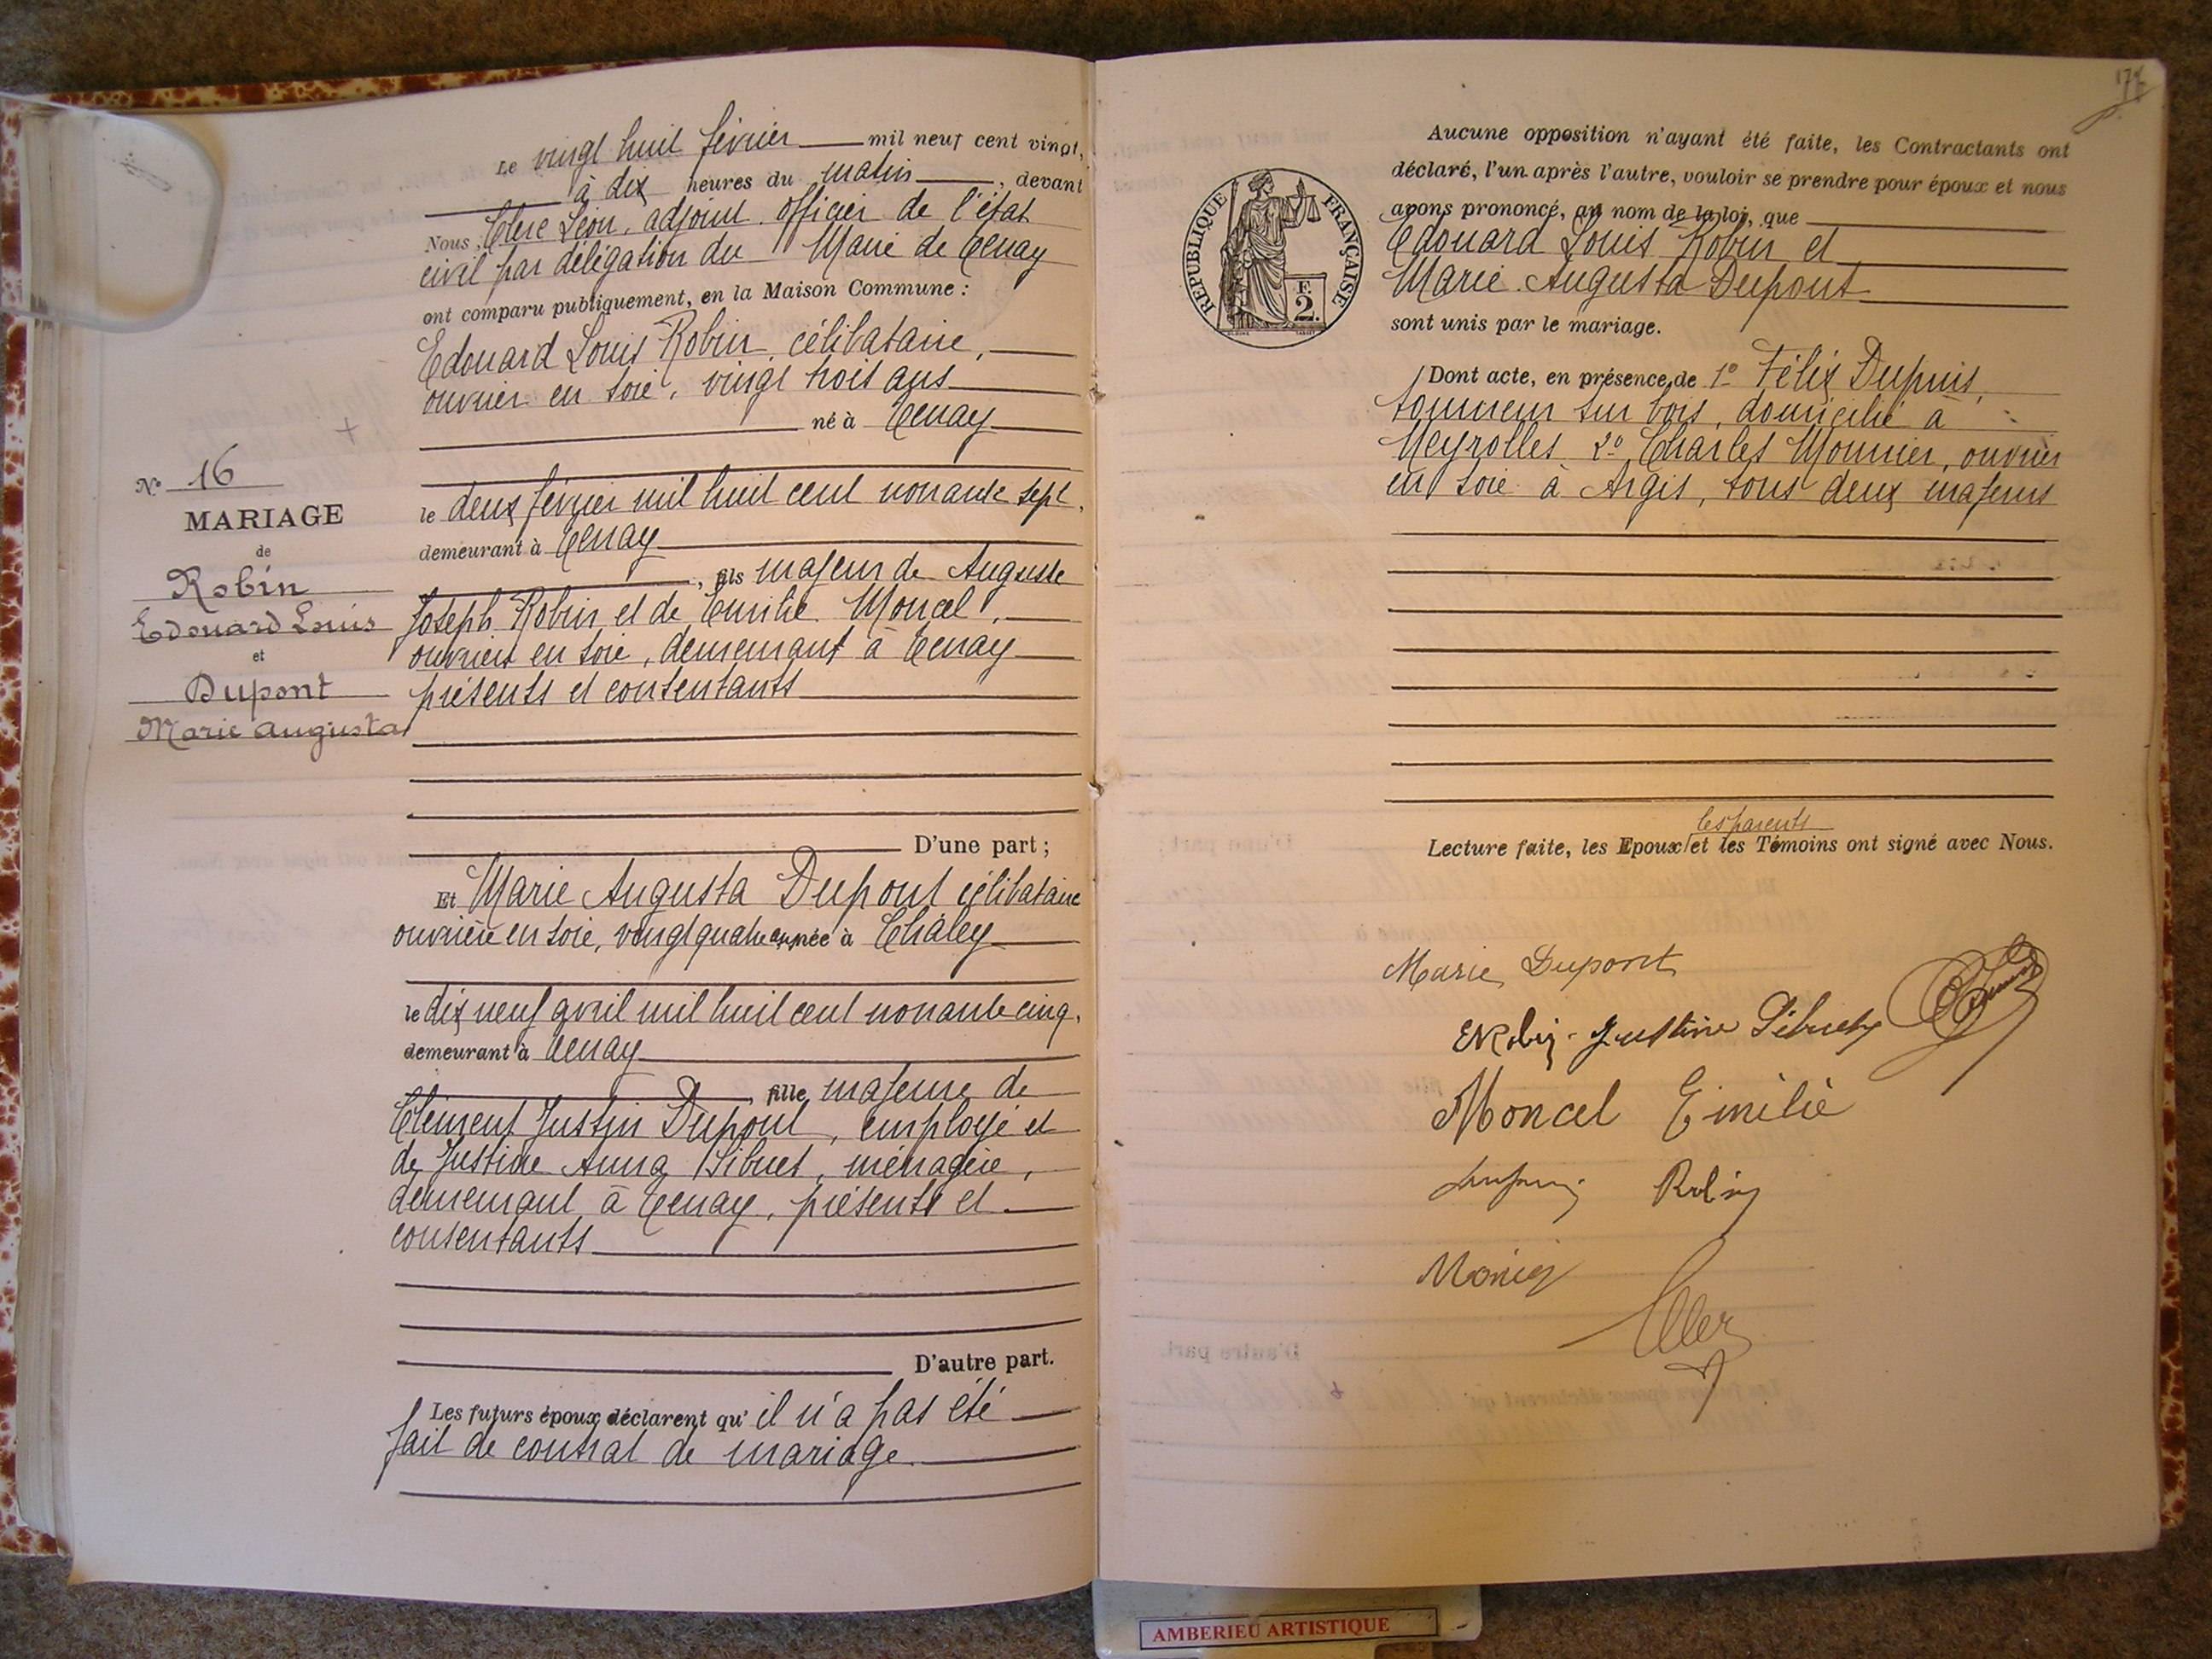 Le vingt huit février mil neuf cent vingt,
à dix heures du matin, devant
Nous, Clerc Léon, adjoint officier de l'état
civil par délégation du Maire de Tenay
ont comparu publiquement, en la Maison Commune :
Edouard Louis Robin, célibataire,
ouvrier en soie, vingt trois ans
né à Tenay
le deux février mil huit cent nonante sept,
demeurant à Tenay
, fils majeur de Auguste
Joseph Robin et de Emilie Moncel,
ouvriers en soie, demeurant à Tenay
présents et consentants
D'une part ;
Et Marie Augusta Dupont célibataire
ouvrière en soie, vingt quatre ans née à Chaley
le dix neuf avril mil huit cent nonante cinq,
demeurant à Tenay
, fille majeure de
Clément Justin Dupont, employé et
de Justine Anna Sibuet, ménagère,
demeurant à Tenay, présents et
consentants
D'autre part.
Les futurs époux déclarent qu'il n'a pas été
fait de contrat de mariage
No 16
MARIAGE
de
Robin
Edouard Louis
et
Dupont
Marie Augusta
Aucune opposition n'ayant été faite, les Contractants ont
déclaré, l'un après l'autre, vouloir se prendre pour époux et nous
avons prononcé, au nom de la loi, que
Edouard Louis Robin et
Marie Augusta Dupont
sont unis par le mariage.
Dont acte, en présence de 1º Félix Dupuis,
tourneur sur bois, domicilié à
Meyrolles 2º Charles Monnier, ouvrier
en soie à Argis, tous deux majeurs
les parents
Lecture faite, les Epoux et les Témoins ont signé avec Nous.
RÉPUBLIQUE FRANÇAISE
F.
2.
Marie Dupont
E Robin Justine Sibuet
Moncel Emilie
Robin
AMBERIEU ARTISTIQUE